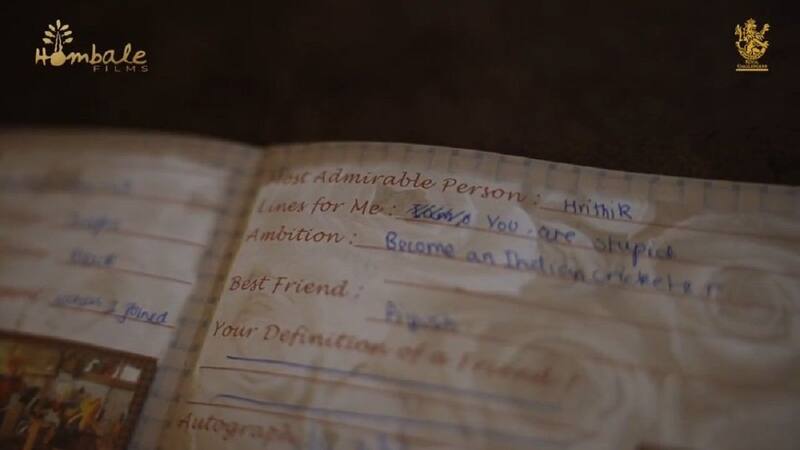 Hombale
FILMS
ROYAL
CHALLENGERS
when I joined
Most Admirable Person : Hrithik
Lines for Me : You are stupid
Ambition : Become an Indian cricketer
Best Friend : Piyush
Your Definition of a Friend :
Autograph